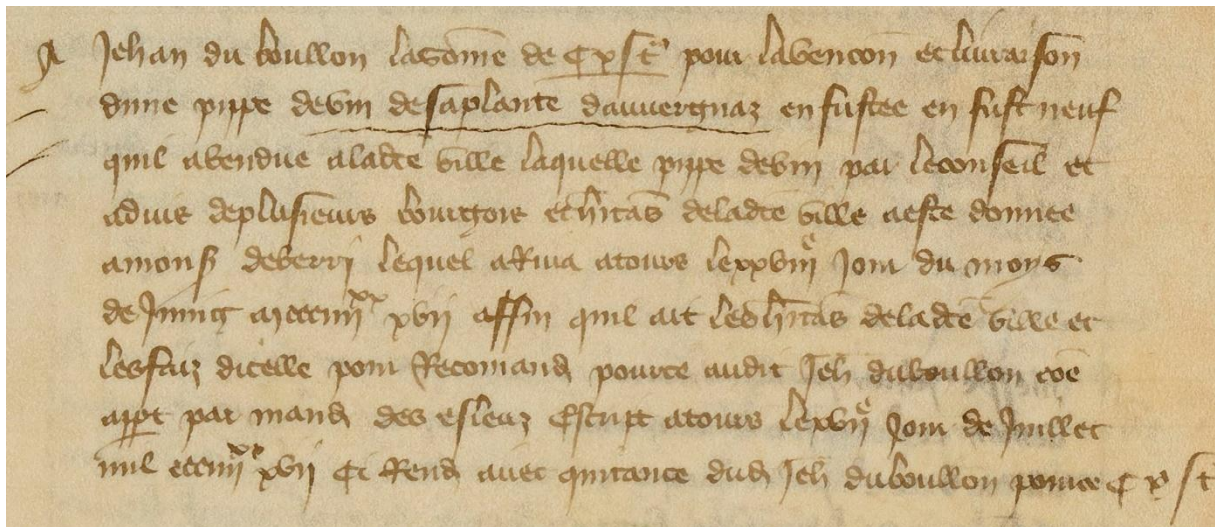 A Jehan du boullon la som̃e de C x st̃ pour la vencon et livraison
dune pippe de vin de saplante dauvergnaz enfustee en fust neuf
quil a vendue a ladc̃e ville laquelle pippe de vin par le conseil et
advis de plusieurs bourgois et hr̃tas̃ de ladc̃e ville a este donnee
a mons de berri lequel ariva a tours le xxviiiͤ jour du moys
de Juing mccciiiiˣˣ xvii affin quil ait les hr̃tas̃ de ladc̃e ville et
les faiz dicelle pour Recomand pource audit Jeh̃ du boullon cõe
appt par mand des esleuz Escript a tours le xviiͤ Jour de Juillet
mil ccciiiiˣˣ xvii Ci Rend avec quitance dud Jeh̃ du boullon pource C x st̃